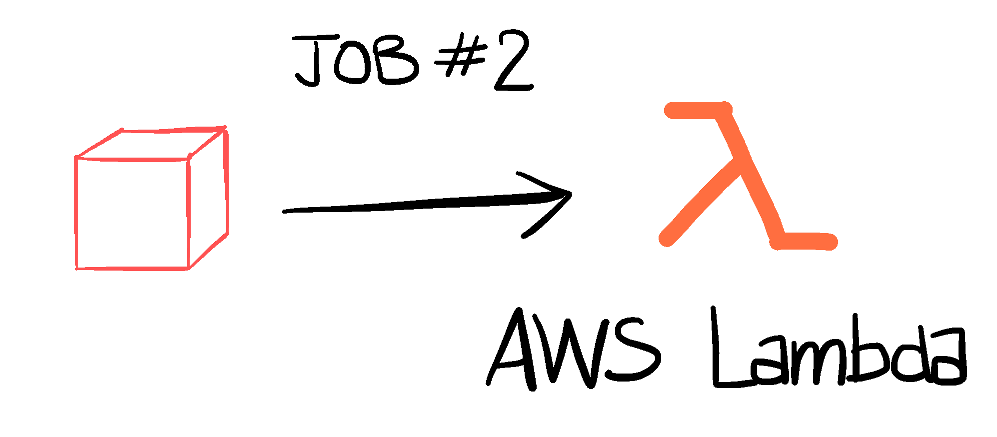 JOB #2
AWS Lambda